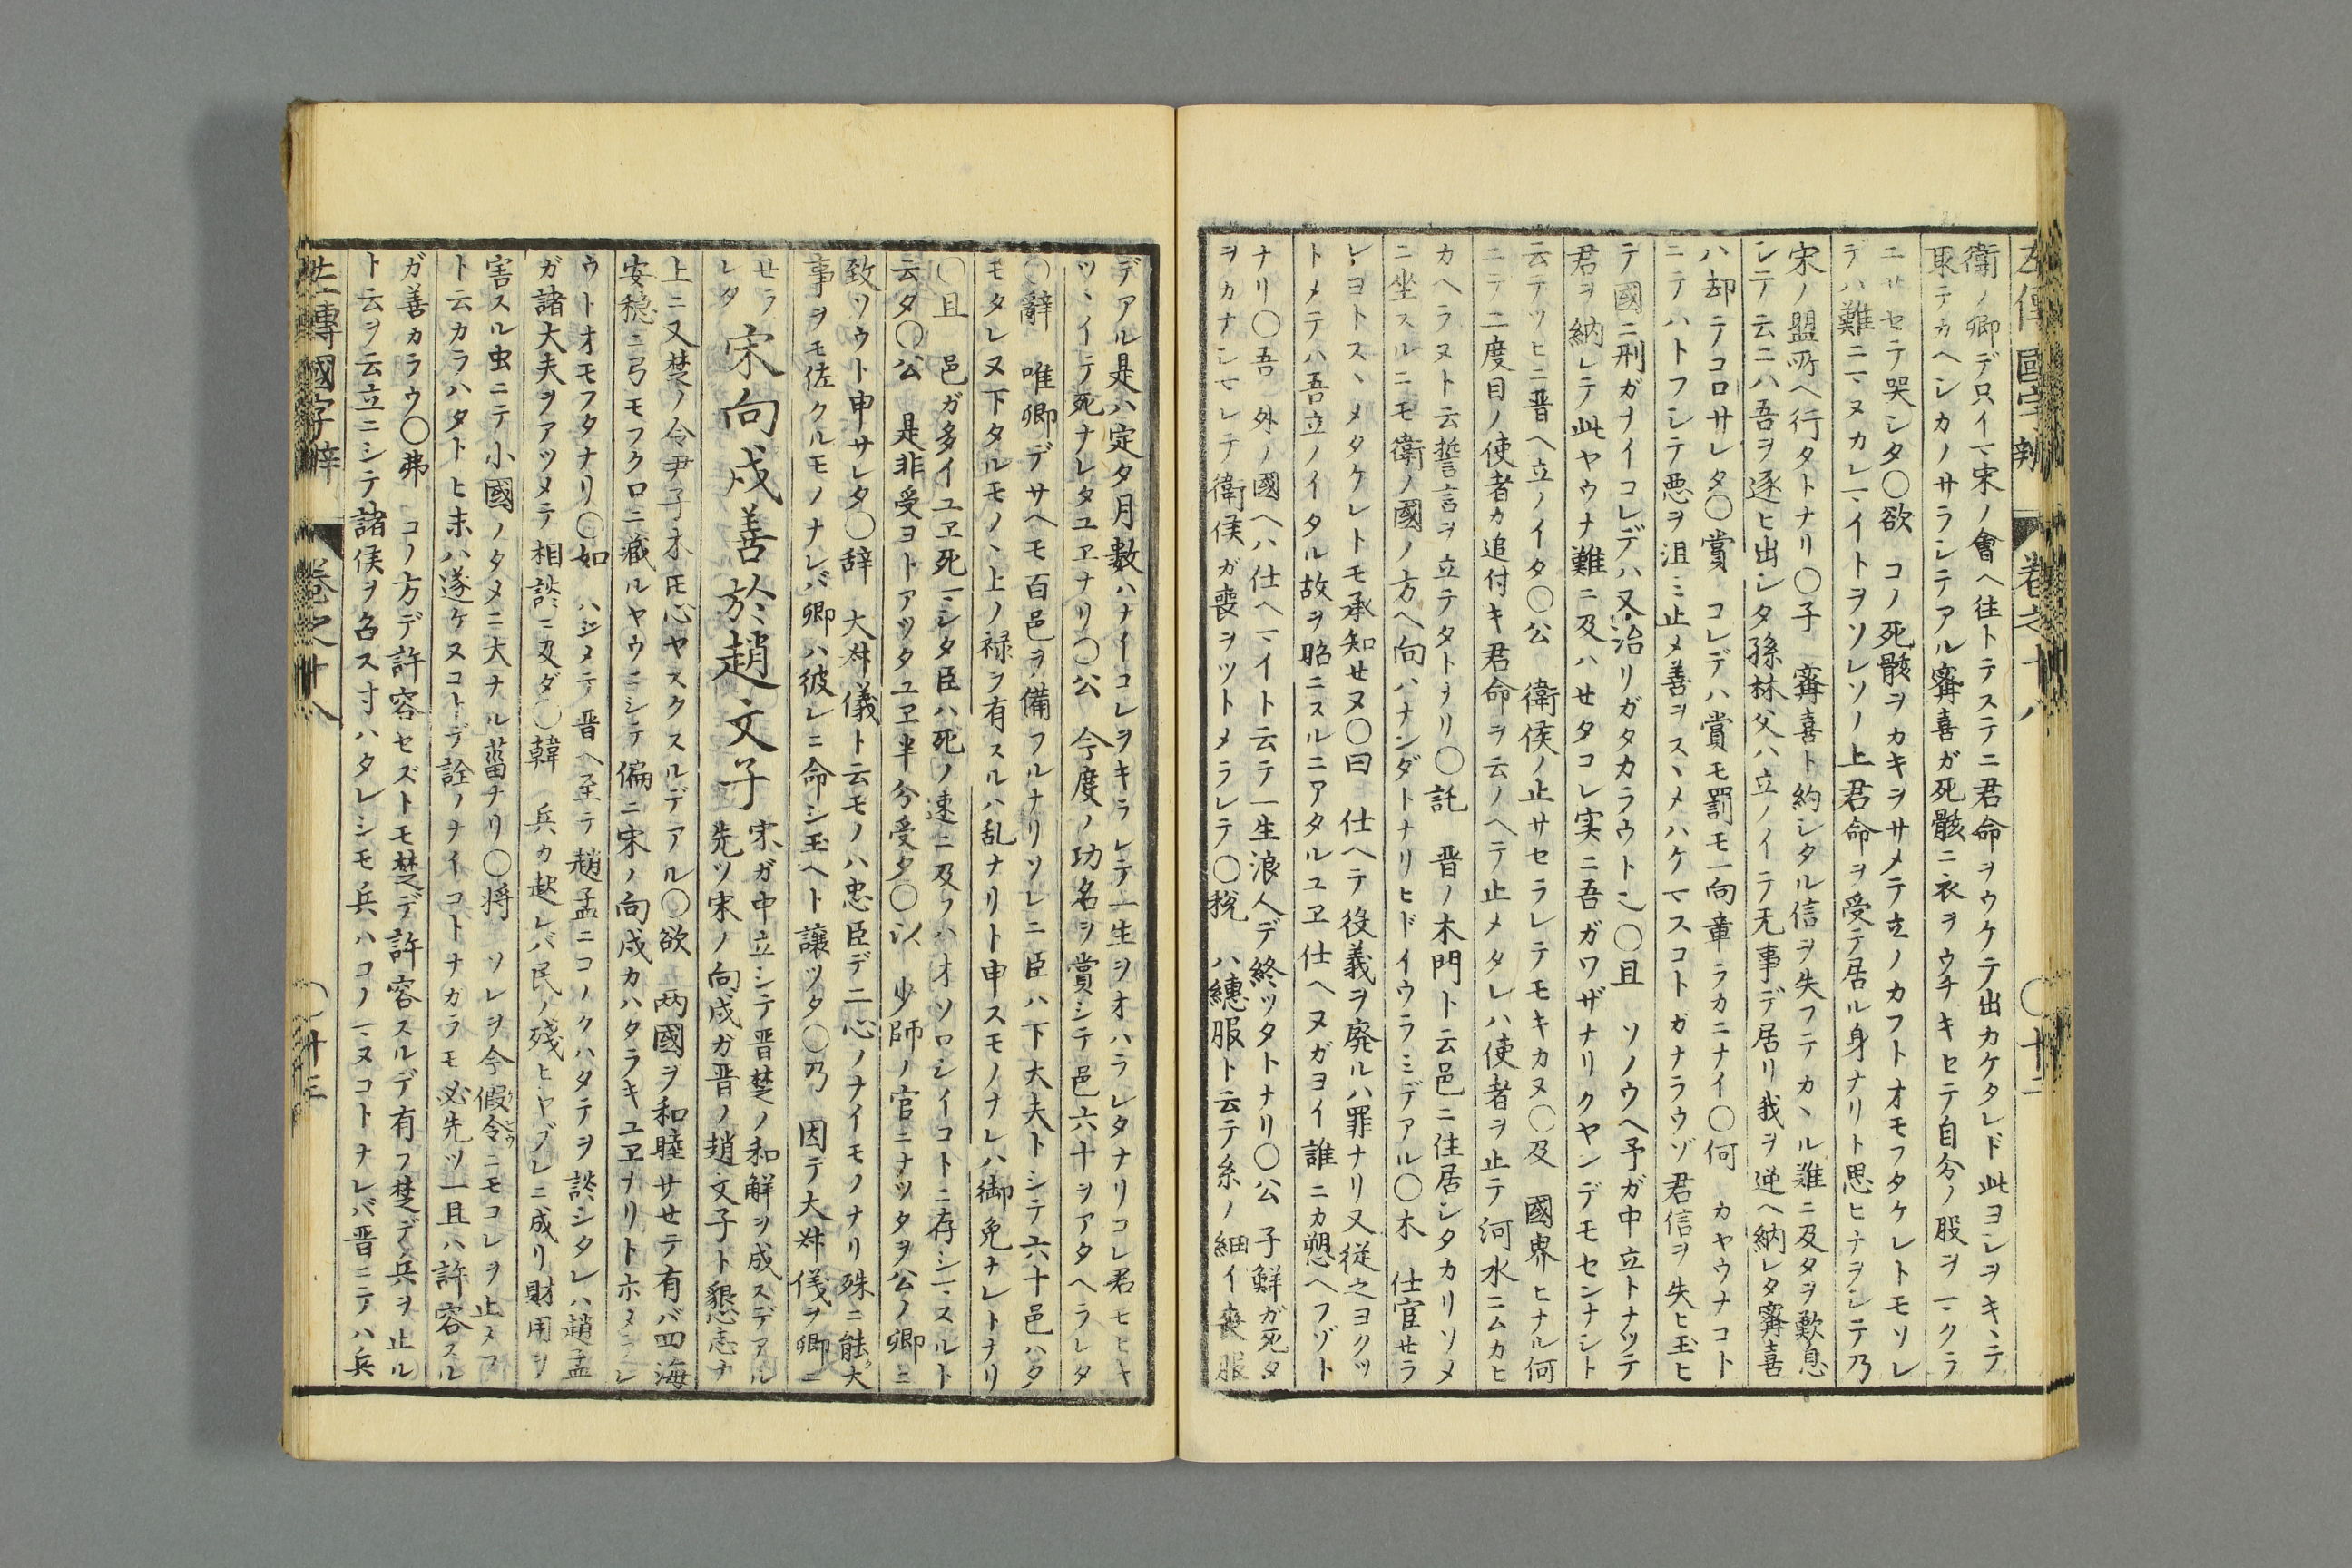 左傳國字辨　卷之十八　〇十二
衛ノ卿デ只イマ宋ノ會ヘ往トテステニ君命ヲウケテ出カケタレド此ヨシヲキヽテ
取テカヘシカノサランテアル甯喜ガ死骸ニ衣ヲウチキセテ自分ノ股ヲマクラ
ニサセテ哭シタ〇欲　コノ死骸ヲカキヲサメテ立ノカフトオモフタケレトモソレ
デハ難ニマヌカレマイトヲソレソノ上君命ヲ受テ居ル身ナリト思ヒナヲシテ乃
宋ノ盟所ヘ行タトナリ〇子　甯喜ト約シタル信ヲ失フテカヽル難ニ及タヲ歎息
シテ云ニハ吾ヲ逐ヒ出シタ孫林父ハ立ノイテ无事デ居リ我ヲ逆ヘ納レタ甯喜
ハ却テコロサレタ〇賞　コレデハ賞モ罰モ一向章ラカニナイ〇何　カヤウナコト
ニテハトフシテ悪ヲ沮ミ止メ善ヲスヽメハケマスコトガナラウゾ君信ヲ失ヒ玉ヒ
テ國ニ刑ガナイコレデハ又治リガタカラウト也〇且　ソノウヘ予ガ中立トナツテ
君ヲ納レテ此ヤウナ難ニ及ハせタコレ実ニ吾ガワザナリクヤンデモセンナシト
云テツヒニ晋ヘ立ノイタ〇公　衛侯ノ止サセラレテモキカヌ〇及　國界ヒナル何
ニテ二度目ノ使者カ追付キ君命ヲ云ノヘテ止メタレハ使者ヲ止テ河水ニムカヒ
カヘラヌト云誓言ヲ立テタトナリ〇託　晋ノ木門ト云邑ニ住居シタカリソメ
ニ坐スルニモ衛ノ國ノ方ヘ向ハナンダトナリヒドイウラミデアル〇木　仕官せラ
レヨトスヽメタケレトモ承知せヌ〇曰　仕ヘテ役義ヲ廃ルハ罪ナリ又従之ヨクツ
トメテハ吾立ノイタル故ヲ昭ニスルニアタルユヱ仕ヘヌガヨイ誰ニカ愬ヘフゾト
ナリ〇吾　外ノ國ヘハ仕ヘマイト云テ一生浪人デ終ツタトナリ〇公　子鮮ガ死タ
ヲカナシマレテ衛侯ガ喪ヲツトメラレテ〇税　ハ繐服ト云テ糸ノ細イ喪服
デアル是ハ定タ月数ハナイコレヲキラレテ一生ヲオハラレタナリコレ君モヒキ
ツヽイテ死ナレタユヱナリ〇公　今度ノ功名ヲ賞シテ邑六十ヲアタヘラレタ
〇辭　唯卿デサヘモ百邑ヲ備フルナリソレニ臣ハ下大夫トシテ六十邑ハタ
モタレヌ下タルモノヽ上ノ禄ヲ有スルハ乱ナリト申スモノナレハ御免ナレトナリ
〇且　邑ガ多イユヱ死マシタ臣ハ死ノ速ニ及フハオソロシイコトニ存シマスルト
云タ〇公　是非受ヨトアツタユヱ半分受タ〇以　少師ノ官ニナツタヲ公ノ卿ニ
致ツウト申サレタ〇辞　大叔儀ト云モノハ忠臣デ二心ノナイモノナリ殊ニ能大
事ヲモ佐クルモノナレバ卿ハ彼レニ命シ玉ヘト譲ツタ〇乃　因テ大叔儀ヲ卿ニ
せラレタ　宋向戍善於趙文子　宋ガ中立シテ晋楚ノ和解ヲ成スデアル
先ツ宋ノ向戍ガ晋ノ趙文子ト懇志ナ
上ニ又楚ノ令尹子木氏心ヤスクスルデアル〇欲　两國ヲ和睦サせテ有バ四海
安穏ニ弓モフクロニ藏ルヤウニシテ偏ニ宋ノ向戍カハタラキユヱナリトホメラレ
ウトオモフタナリ〇如　ハジメテ晋ヘ至テ趙孟ニコノクハタテヲ談シタレハ趙孟
ガ諸大夫ヲアツメテ相談ニ及ダ〇韓　兵カ起レバ民ノ殘ヒヤブレニ成リ財用ヲ
害スル虫ニテ小國ノタメニ大ナル菑ナリ〇将　ソレヲ今假令ニモコレヲ止メフ
ト云カラハタトヒ末ハ遂ケヌコトデ詮ノナイコトナガラモ必先ツ一旦ハ許容スル
ガ善カラウ〇弗　コノ方デ許容セズトモ楚デ許容スルデ有フ楚デ兵ヲ止ル
ト云ヲ云立ニシテ諸侯ヲ召ス寸ハタレシモ兵ハコノマヌコトナレバ晋ニテハ兵
左傳國字辨　卷之十八　〇十三